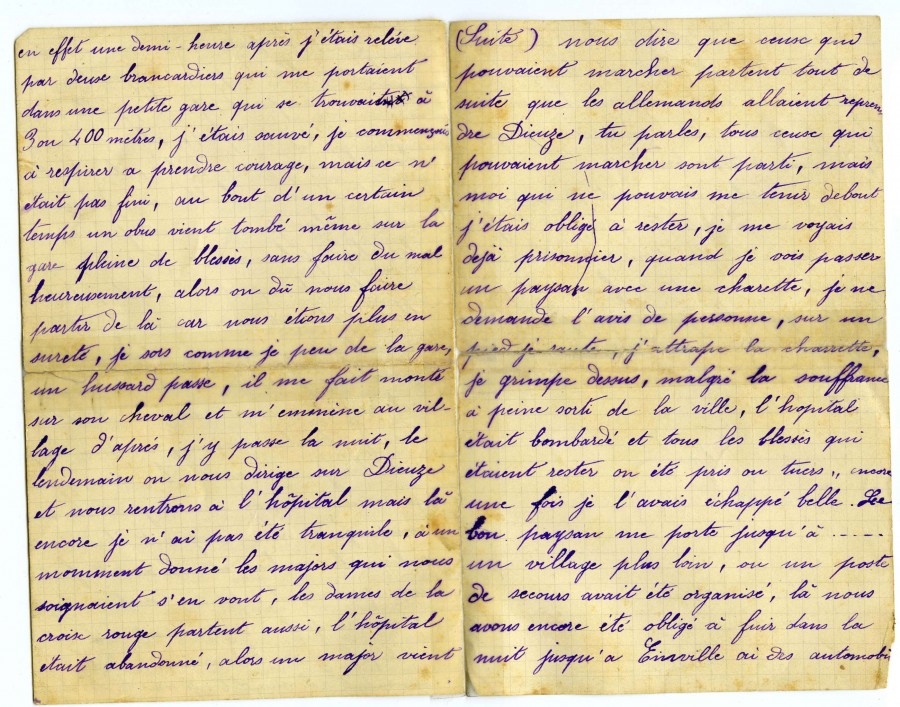 en effet une demi-heure après j'étais relévé
par deuse brancardiers qui me portaient
dans une petite gare qui se trouvait à
3 ou 400 mètres, j'étais sauvé, je commençais
à respirer a prendre courage, mais ce n'
était pas fini, au bout d'un certain
temps un obus vient tombé même sur la
gare pleine de blessés, sans faire du mal
heureusement, alors on dû nous faire
partir de là car nous étions plus en
sureté, je sors comme je peu de la gare,
un hussard passe, il me fait monté
sur son cheval et m'emmène au vil-
lage d'après, j'y passe la nuit, le
lendemain on nous dirige sur Dieuze
et nous rentrons à l'hôpital mais là
encore je n'ai pas été tranquile, à un
momment donné les majors qui nous
soignaient s'en vont, les dames de la
croix rouge partent aussi, l'hôpital
était abandonné, alors un major vient
(Suite) nous dire que ceuse qui
pouvaient marcher partent tout de
suite que les allemands allaient repren-
dre Dieuze, tu parles, tous ceuse qui
pouvaient marcher sont parti, mais
moi qui ne pouvais me tenir debout
j'étais obligé à rester, je me voyais
déjà prisonnier, quand je vois passer
un paysan avec une charette, je ne
demande l'avis de personne, sur un
pied je saute, j'attrape la charrette,
je grimpe dessus, malgré la souffrance
à peine sorti de la ville, l'hopital
était bombardé et tous les blessés qui
étaient rester on été pris ou tuers,, encore
une fois je l'avais échappé belle. Le
bon paysan me porte jusqu'à .....
un village plus loin, ou un poste
de secours avait été organisé, là nous
avons encore été obligé à fuir dans la
nuit jusqu'a Einville ai des automobi